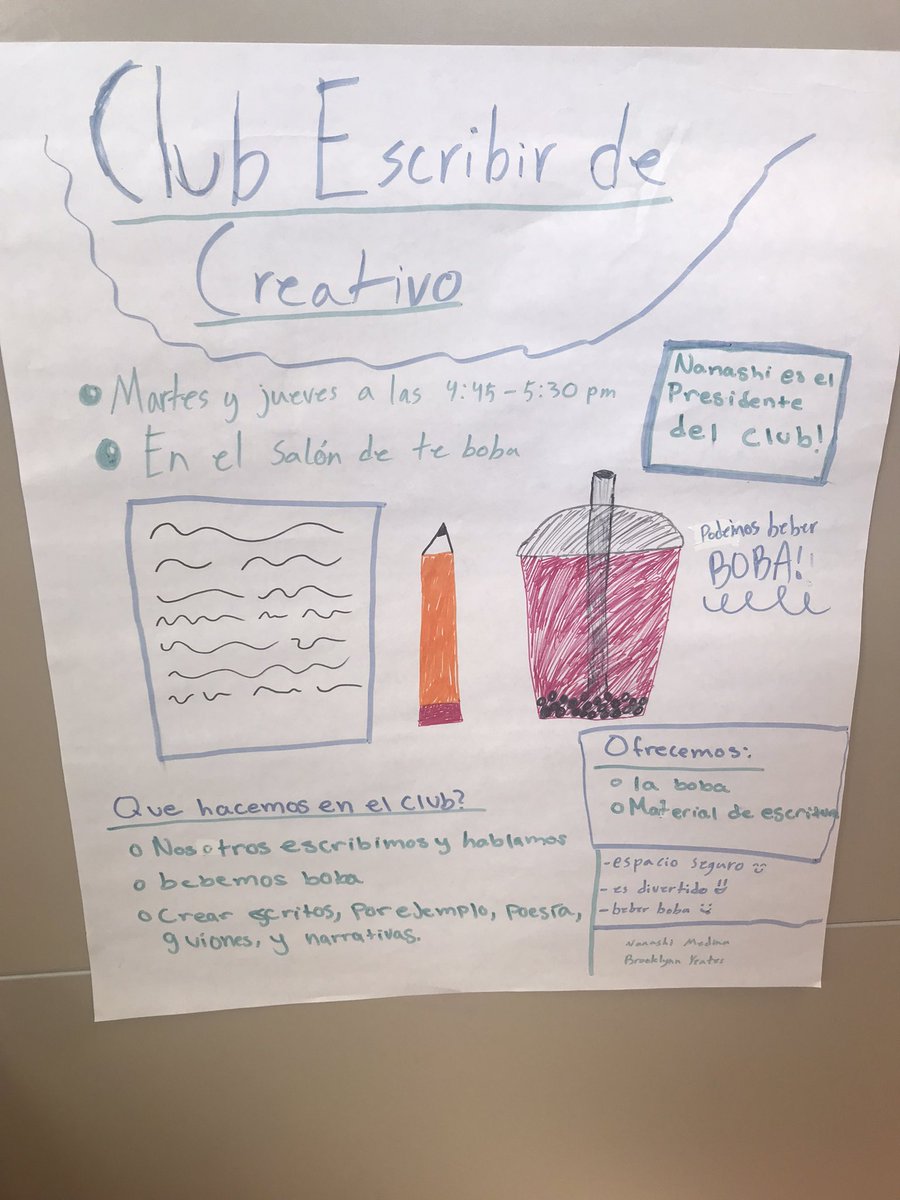 Club Escribir de
Creativo
Martes y jueves a las 4:45-5:30 pm
En el Salón de te boba
Nanashi es el
Presidente
del Club!
Podemos beber
BOBA!
Que hacemos en el club?
Nosotros escribimos y hablamos
bebemos boba
Crear scritos, por ejemplo, poesía,
guiones, y narrativas.
Ofrecemos:
la boba
Material de escritura
-espacio seguro
-es divertido
-beber boba
Nanashi Medina
Brooklynn Yeates